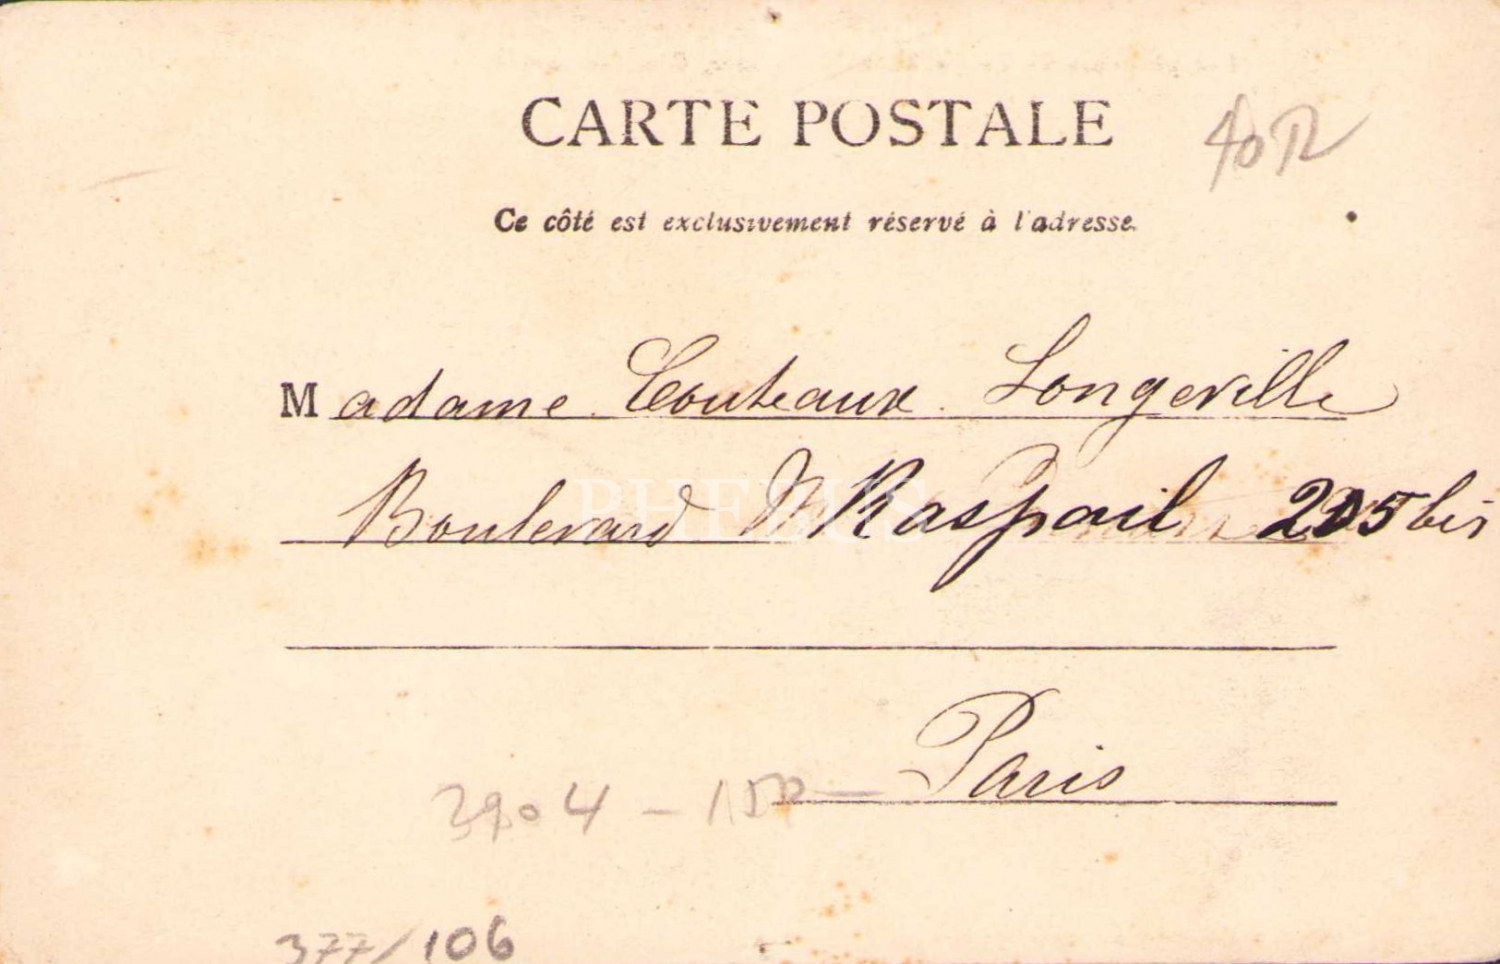 CARTE POSTALE
40
Ce côté est exclusivement réservé à l'adresse.
Madame Couteaux Longeville
Boulevard Raspail 205 bis
PHEBUS
Paris
3904 -
377/106